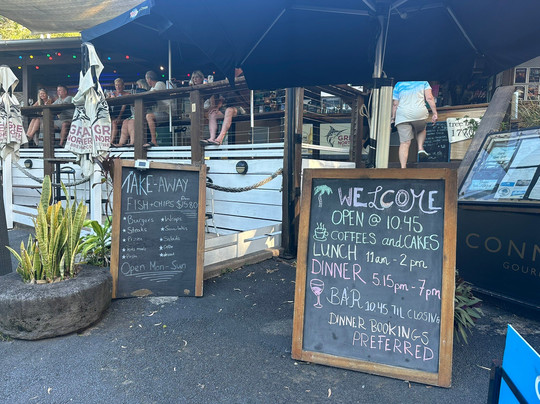 TAKE-AWAY
FISH + CHIPS
Burgers
Steaks
Pizza
Wraps
Salads
Open Mon - Sun
WELCOME
OPEN @ 10.45
COFFEES and CAKES
LUNCH 11am - 2pm
DINNER 5.15pm - 7pm
BAR 10.45 TIL CLOSING
DINNER BOOKINGS
PREFERRED
GREAT
NORTHERN
CONN
GOUR